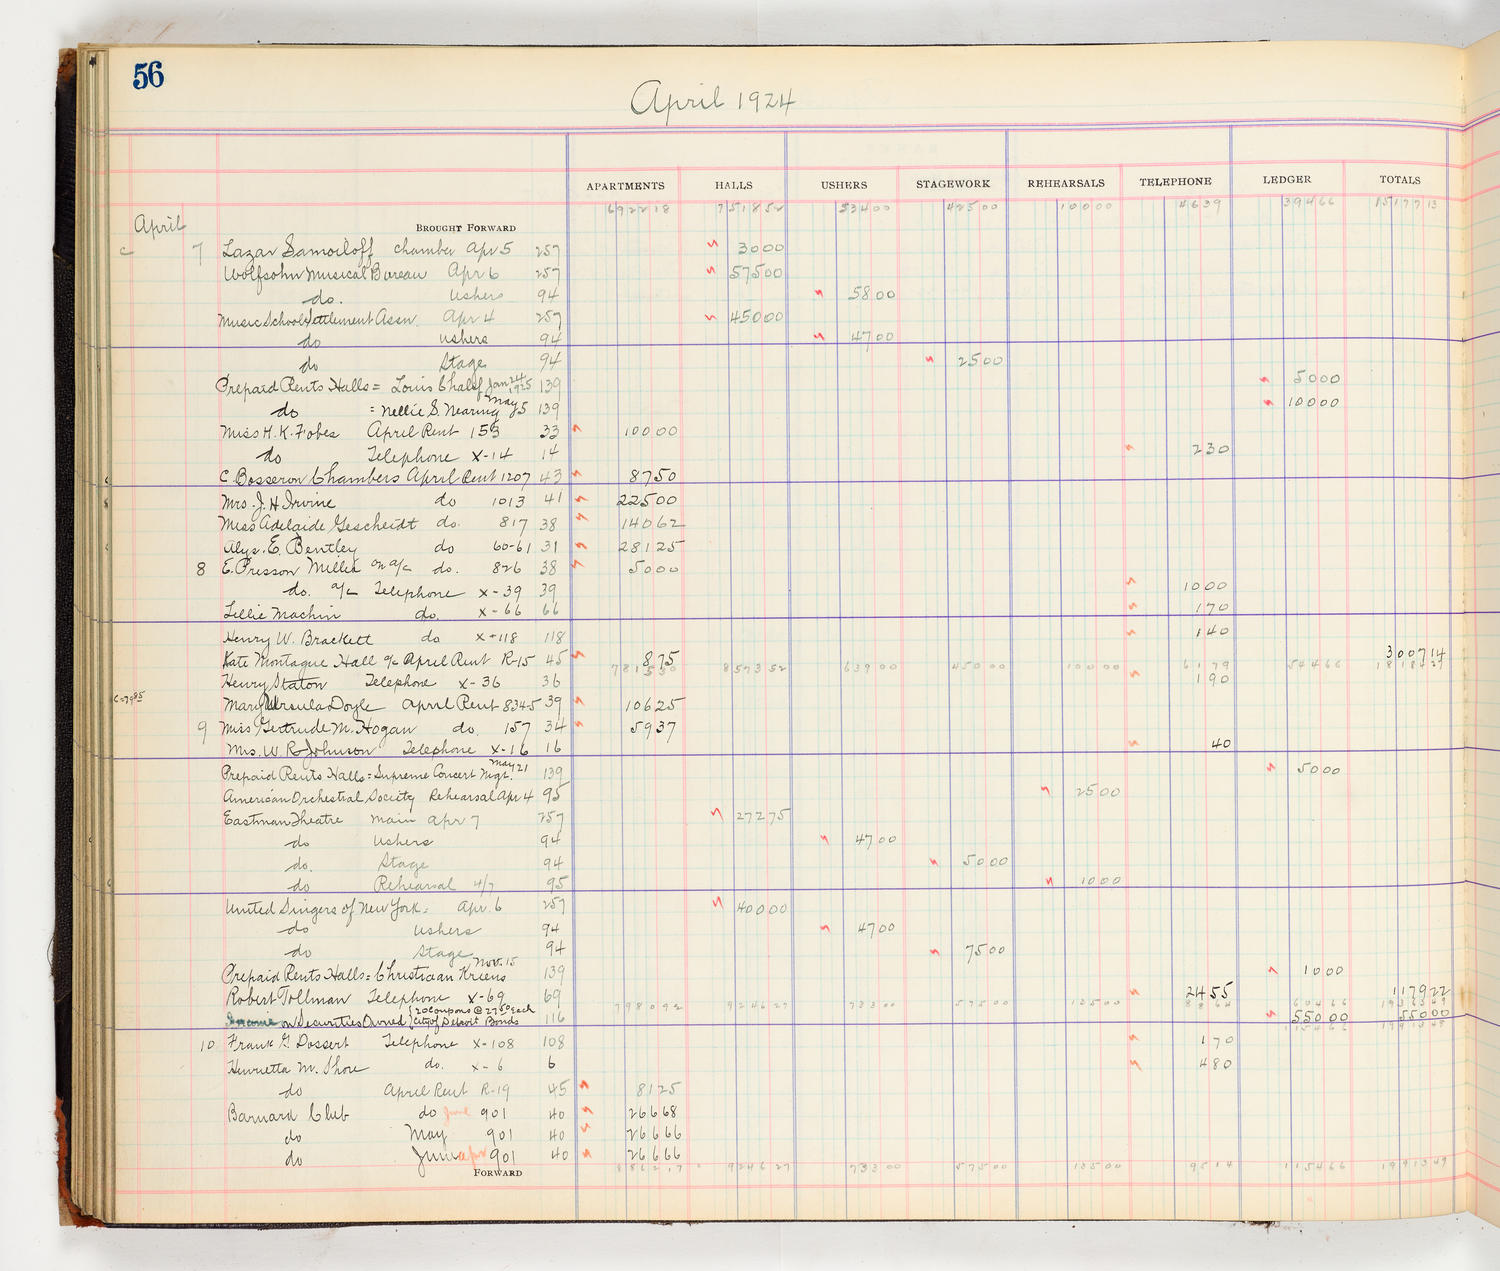 56
April 1924
APARTMENTS HALLS USHERS STAGEWORK REHEARSALS TELEPHONE LEDGER TOTALS
692218 751852 53400 42500 10000 4639 39466 1517713
April BROUGHT FORWARD
c 7 Lazar Samoiloff Chamber Apr 5 257 3000
Wolfsohn Musical Bureau Apr 6 257 57500
do. Ushers 94 5800
Music School Settlement Assn. Apr 4 257 45000
do ushers 94 4700
do Stage 94 2500
Prepaid Rents Halls = Louis Chalif Jan 24 1925 139 5000
do = Nellie S. Nearing May 25 139 10000
Miss H. K. Fobes April Rent 153 33 10000
do Telephone X-14 14 230
C Bosseron Chambers April Rent 1207 43 8750
Mrs. J. H Irvine do 1013 41 22500
Miss Adelaide Gescheidt do. 817 38 14062
Alys. E. Bentley do 60-61 31 28125
8 E. Presson Miller on a/c do. 826 38 5000
do. a/c Telephone X-39 39 1000
Lillie Machin do. X-66 66 170
Henry W. Brackett do X-118 118 140
Kate Montague Hall a/c April Rent R-15 45 875 300714
781550 857352 63900 45000 10000 6179 54466 1818427
Henry Staton Telephone X-36 36 190
Mary Ursula Doyle April Rent 834-5 39 10625
9 Miss Gertrude M. Hogan do. 157 34 5937
Mrs. W. R. Johnson Telephone X-16 16 40
Prepaid Rents Halls = Supreme Concert Mgt. May 21 139 5000
American Orchestral Society Rehearsal Apr 4 95 2500
Eastman Theatre main Apr 7 257 27275
do ushers 94 4700
do. Stage 94 5000
do Rehearsal 4/7 95 1000
United Singers of New York = Apr. 6 257 40000
do ushers 94 4700
do Stage 94 7500
Prepaid Rents Halls = Christiaan Kriens Nov. 15 139 1000
Robert Tollman Telephone X-69 69 2455 117922
798092 924627 73300 57500 13500 8864 60466
Income on Securities Owned {20 Coupons @ 27 50 each City of Detroit Bonds 116 55000 55000
115466 1991349
10 Frank G. Dossert Telephone X-108 108 170
Henrietta M. Shore do. X-6 6 480
do April Rent R-19 45 8125
Barnard Club do June 901 40 26668
do May 901 40 26666
do June apr 901 40 26666
FORWARD 886217 924627 73300 57500 13500 9514 115466